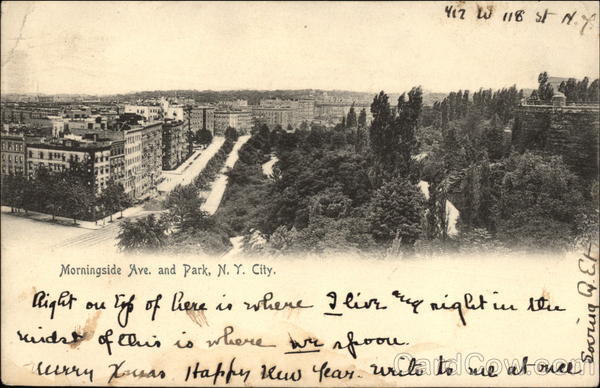 417 W 118 St N.Y.
Morningside Ave. and Park, N. Y. City.
Right on Top of here is where I live any night in the
midst of this is where we spoon.
Merry Xmas Happy New Year. write to me at once
Loving by
CardCow.com